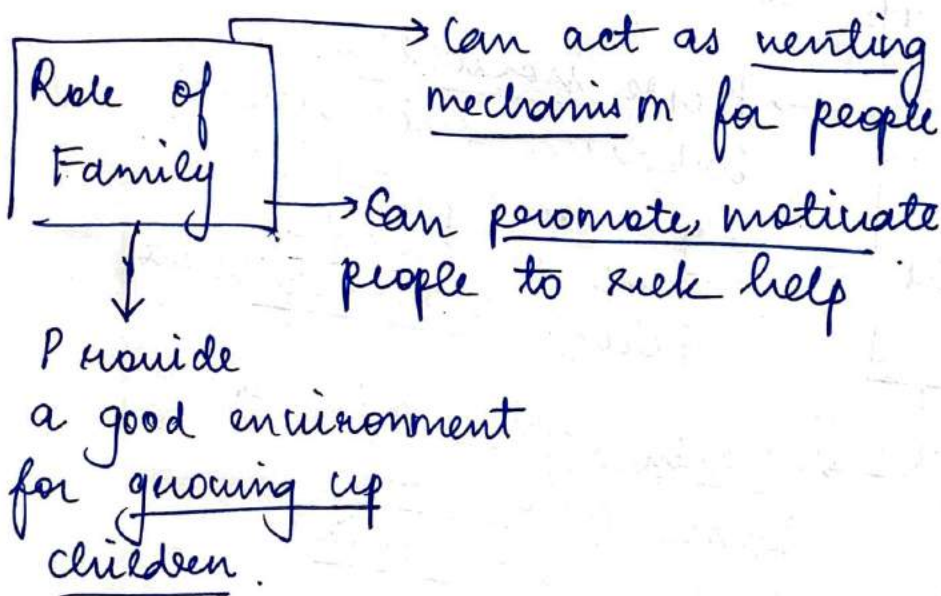 Role of
Family
Can act as venting
mechanism for people
Can promote, motivate
people to seek help
Provide
a good environment
for growing up
children.